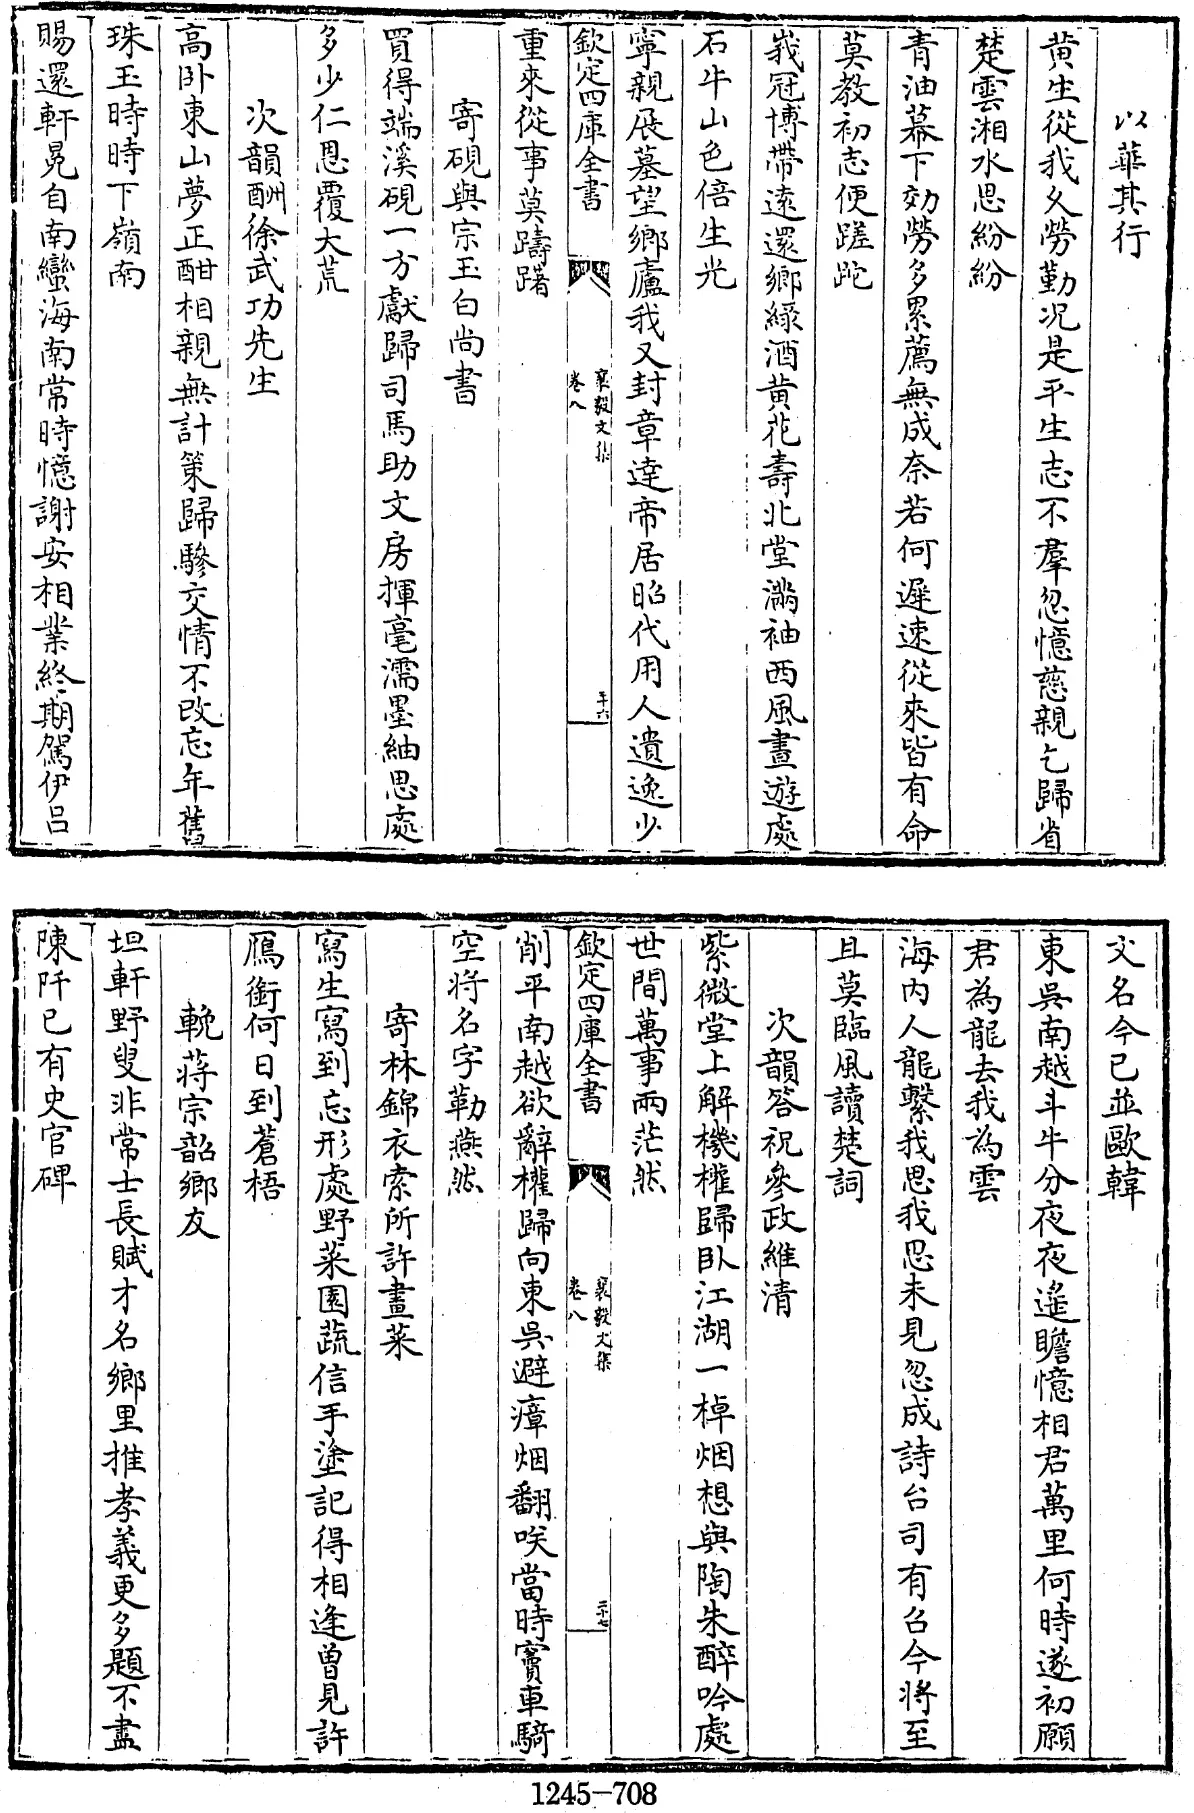 以華其行
黄生從我久勞勤况是平生志不羣忽憶慈親乞歸省
楚雲湘水思紛紛
青油幕下効勞多累薦無成奈若何遲速從來皆有命
莫教初志便蹉跎
峩冠博帶遠還鄉緑酒黄花壽北堂滿袖西風晝遊處
石牛山色倍生光
寧親展墓望鄉廬我又封章達帝居昭代用人遺逸少
欽定四庫全書
襄毅文集
卷八
二十六
重來從事莫躊躇
寄硯與宗玉白尚書
買得端溪硯一方獻歸司馬助文房揮毫濡墨紬思處
多少仁恩覆大荒
次韻酬徐武功先生
高卧東山夢正酣相親無計策歸驂交情不改忘年舊
珠玉時時下嶺南
賜還軒冕自南蠻海南常時憶謝安相業終期駕伊吕
文名今已並歐韓
東吳南越斗牛分夜夜遙瞻憶相君萬里何時遂初願
君為龍去我為雲
海内人龍繫我思我思未見忽成詩台司有召今將至
且莫臨風讀楚詞
次韻答祝參政維清
紫微堂上解機權歸卧江湖一棹烟想與陶朱醉吟處
世間萬事兩茫然
欽定四庫全書
襄毅文集
卷八
二十七
削平南越欲辭權歸向東吳避瘴烟翻咲當時竇車騎
空將名字勒燕然
寄林錦衣索所許畫菜
寫生寫到忘形處野菜園蔬信手塗記得相逢曾見許
鴈銜何日到蒼梧
輓蔣宗韶鄉友
坦軒野叟非常士長賦才名鄉里推孝義更多題不盡
陳阡已有史官碑
1245-708